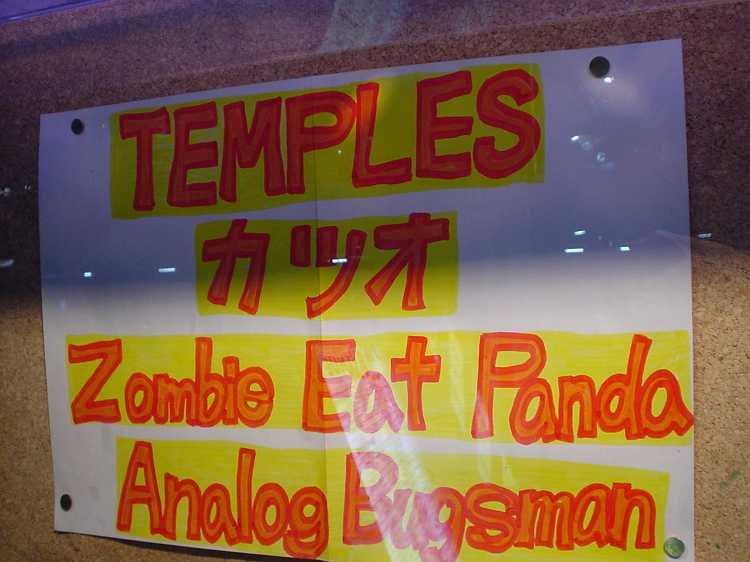 TEMPLES
カツオ
Zombie Eat Panda
Analog Bugsman